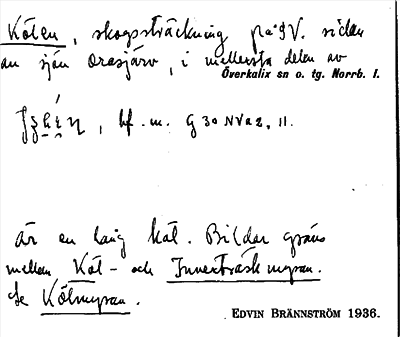 Kölen, skogssträckning på SV. sidan
av sjön Orasjärv, i mellersta delen av
Överkalix sn o. tg. Norrb. l.
bf. m. G 30 NV a 2, 11.
är en lång köl. Bildar gräns
mellan Köl- och Innerträskmyran.
Se Kölmyran.
EDVIN BRÄNNSTRÖM 1936.